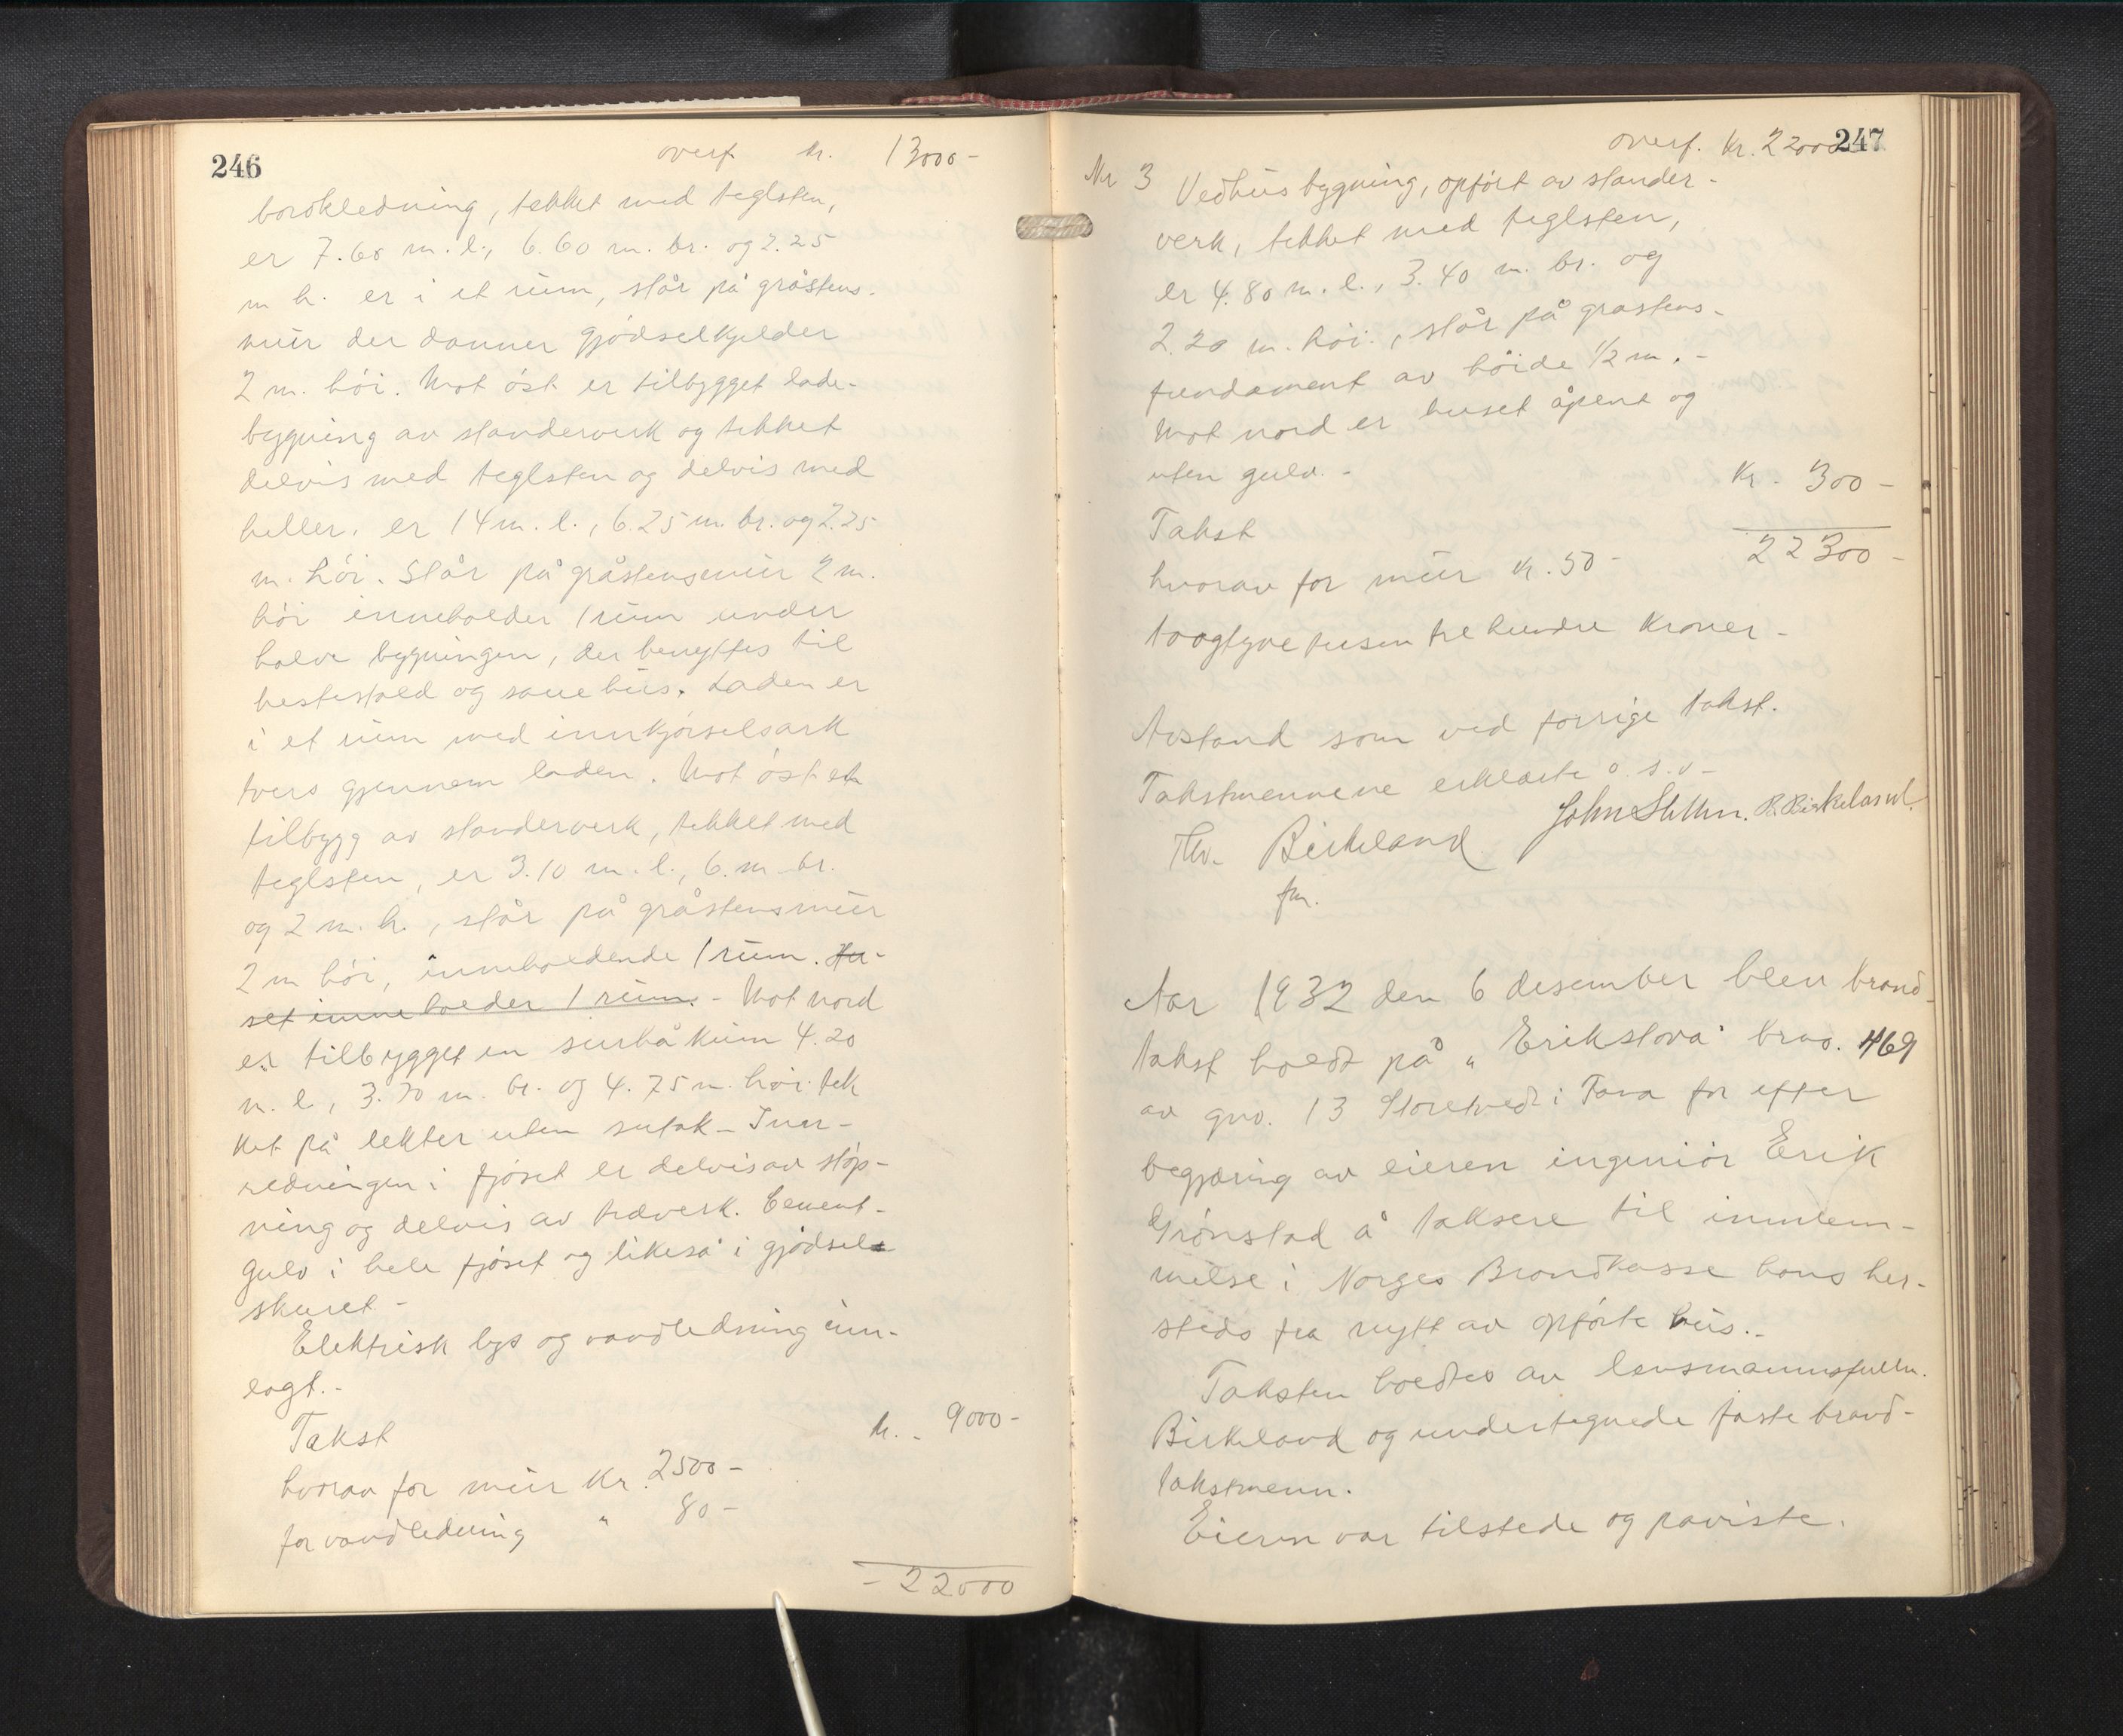 246
overf. kr. 13000-
bordkledning, tekket med teglsten,
er 7.60 m. l., 6.60 m. br. og 2.25
m h. er i et rum, står på gråstens-
mur der danner gjødselkjelder
2 m. høi. Mot øst er tilbygget lade-
bygning av standerverk og tekket
delvis med teglsten og delvis med
heller. er 14 m. l., 6.25 m. br. og 2.25
m. høi. Står på gråstensmur 2 m.
høi inneholder 1 rum under
halve bygningen, der benyttes til
hestestald og sauehus. Laden er
i et rum med innkjørselsark
tvers gjennem laden. Mot øst et
tilbygg av standerverk, tekket med
teglsten, er 3.10 m. l., 6. m br.
og 2 m. h., står på gråstensmur
2 m høi, inneholdende 1 rum. Hu-
set inneholder 1 rum. - Mot nord
er tilbygget en surhåkum 4.20
m. l., 3.70 m. br. og 4.75 m. høi. tek
ket på lekter uten sutak - Inn-
redningen i fjøset er delvis av støp-
ning og delvis av treverk. Cement-
gulv i hele fjøset og likeså i gjødsel-
skuret -
Elektrisk lys og vandledning inn-
lagt.-
Takst kr. 9000-
hvorav for mur Kr. 2500-
for vandledning " 80-
- 22000
247
overf. Kr. 22000
Nr 3 Vedhusbygning, opført av stander-
verk, tekket med teglsten,
er 4.80 m. l., 3.40 m. br. og
2.20 m. høi., står på gråstens-
fundament av høide 1/2 m. -
Mot nord er huset åpent og
uten gulv. -
Kr. 300-
Takst
22300-
hvorav for mur kr. 50-
toogtyve tusen tre hundre Kroner -
Avstand som ved forrige takst.
Takstmennene erklærte o. s. v -
John Sletten. P. Birkeland.
Thv. Birkeland
fm.
Aar 1932 den 6 desember blev brand-
takst holdt på "Erikstova" brno. 469
av gno. 13 Storetvedt i Fana for efter
begjæring av eieren ingeniør Erik
Grønstad å taksere til innlem-
melse i Norges Brandkasse hans her-
steds fra nytt av opførte hus.-
Taksten holdtes av lensmannsfullm.
Birkeland og undertegnede faste brand-
takstmenn.
Eieren var tilstede og påviste.